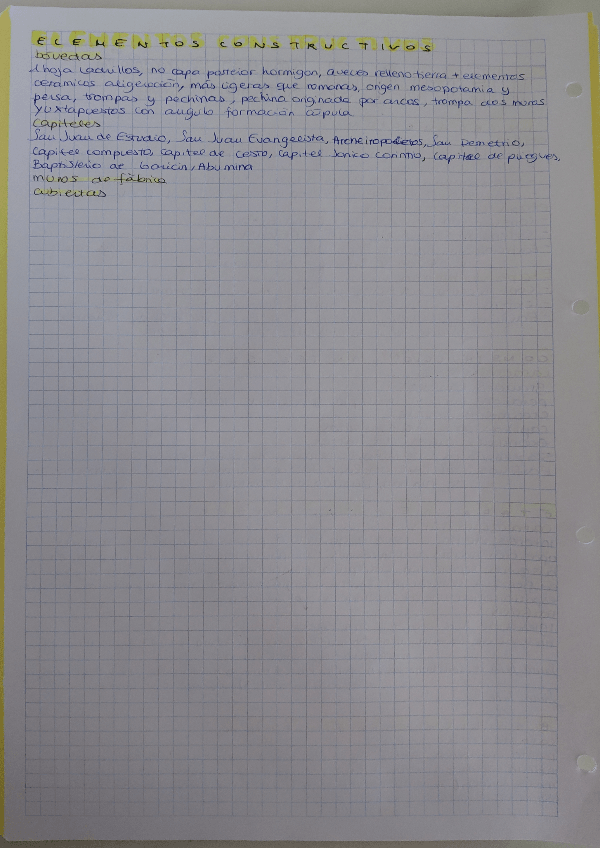 ELEMENTOS CONSTRUCTIVOS
bóvedas
1 hoja ladrillos, no capa posterior hormigon, a veces relleno tierra + elementos
cerámicos aligeración, más ligeras que romanas, origen mesopotamia y
persa, trompas y pechinas, pechina originada por arcos, trompa dos muros
yuxtapuestos con angulo formación cúpula
capiteles
San Juan de Estudio, San Juan Evangelista, Archeiropoietos, San Demetrio,
capitel compuesto, capitel de cesto, capitel Jonico corintio, capitel de pliegues,
Baptisterio de Abumina
muros de fábrica
cubiertas